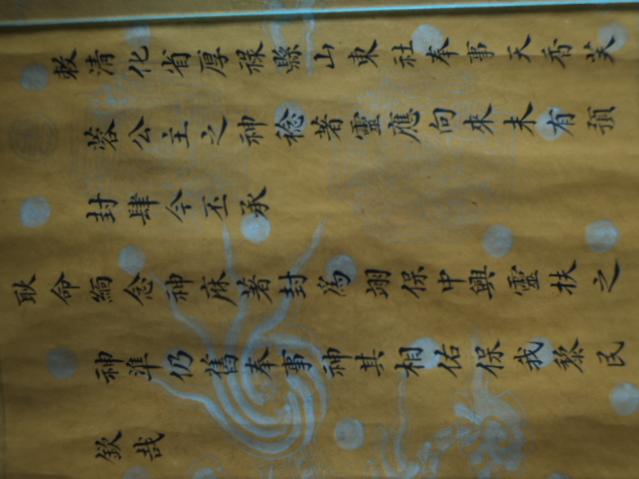 敕清化省厚祿縣山東社奉事天香芙
蓉公主之神稔著靈應向來未有預
封肆今丕承
耿命緬念神庥著封為翊保中興靈扶之
神準仍舊奉事神其相佑保我黎民
欽哉